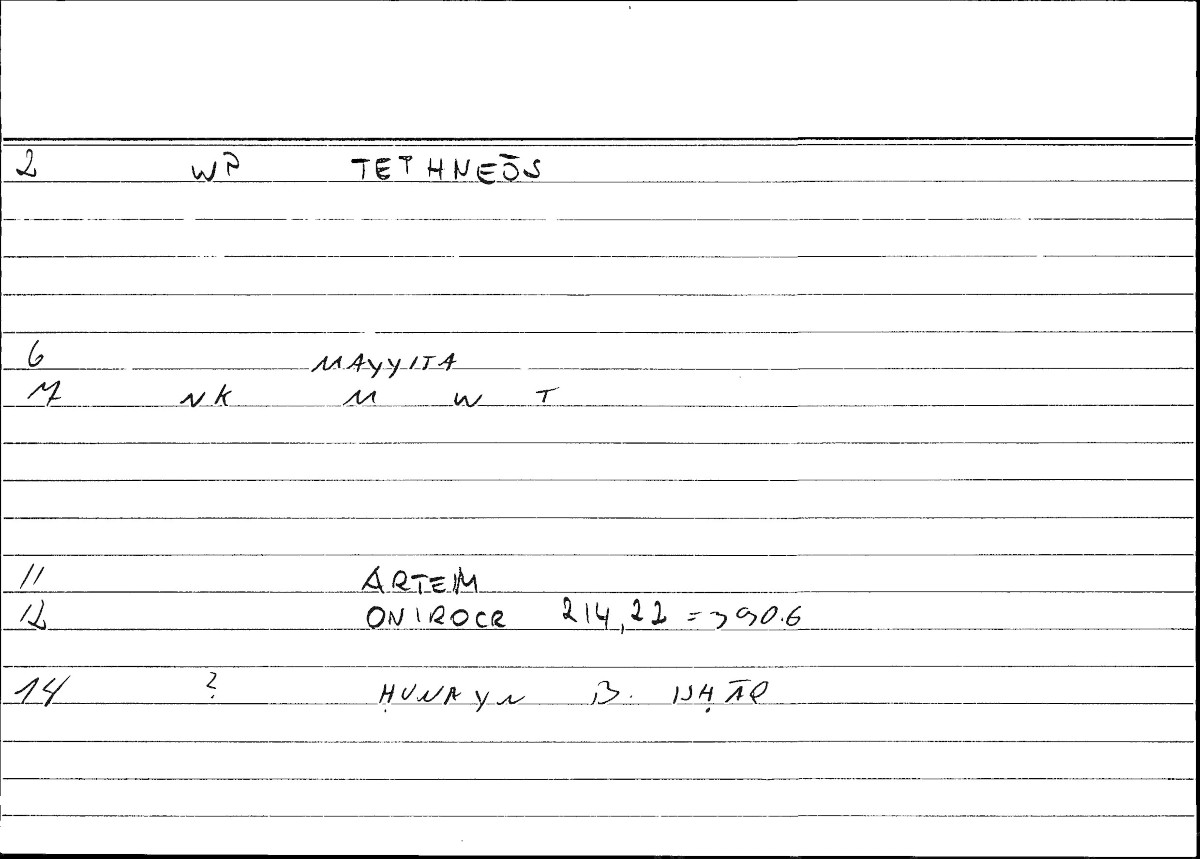 2 WP TETHNEŌS
6 MAYYITA
7 NK M W T
11 ARTEM
12 ONIROCR 214,22 = 390.6
14 ? ḤUNAYN B. ISḤĀQ